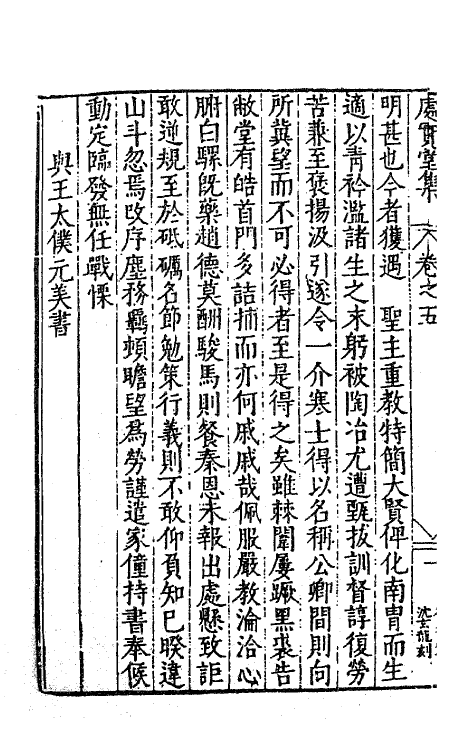 處實堂集 卷之五
一
沈玄龍刻
明甚也今者獲遇　聖主重教特簡大賢俾化南胄而生
適以靑衿濫諸生之末躬被陶冶尤遭甄拔訓督諄復勞
苦兼至褒揚汲引遂令一介寒士得以名稱公卿間則向
所冀望而不可必得者至是得之矣雖棘闈屢蹶黑裘告
敝堂有皓首門多詰捕而亦何戚戚哉佩服嚴教淪洽心
腑白騾旣藥趙德莫酬駿馬則餐秦恩未報出處懸致詎
敢逆規至於砥礪名節勉策行義則不敢仰負知已睽違
山斗忽焉改序塵務羈頓瞻望爲勞謹遣家僮持書奉候
動定臨發無任戰慄
與王太僕元美書